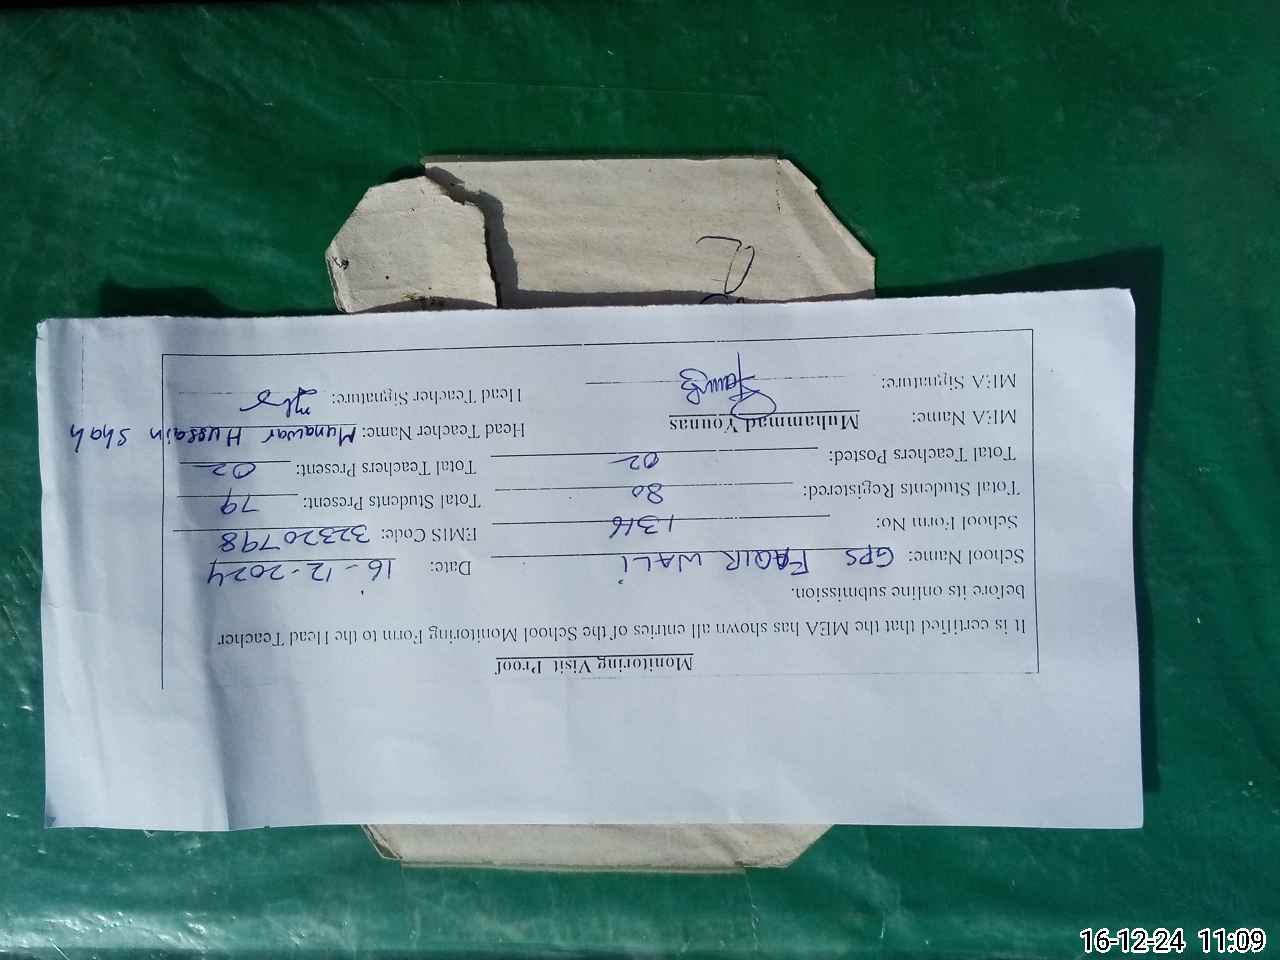 Monitoring Visit Proof
It is certified that the MEA has shown all entries of the School Monitoring Form to the Head Teacher
before its online submission.
School Name: GPS FAQIR WALI Date: 16-12-2024
School Form No: 1316 EMIS Code: 32320798
Total Students Registered: 80 Total Students Present: 79
Total Teachers Posted: 02 Total Teachers Present: 02
MEA Name: Muhammad Younas Head Teacher Name: Munawar Hussain Shah
MEA Signature: Head Teacher Signature:
16-12-24 11:09